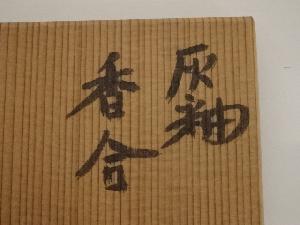 灰釉
香合